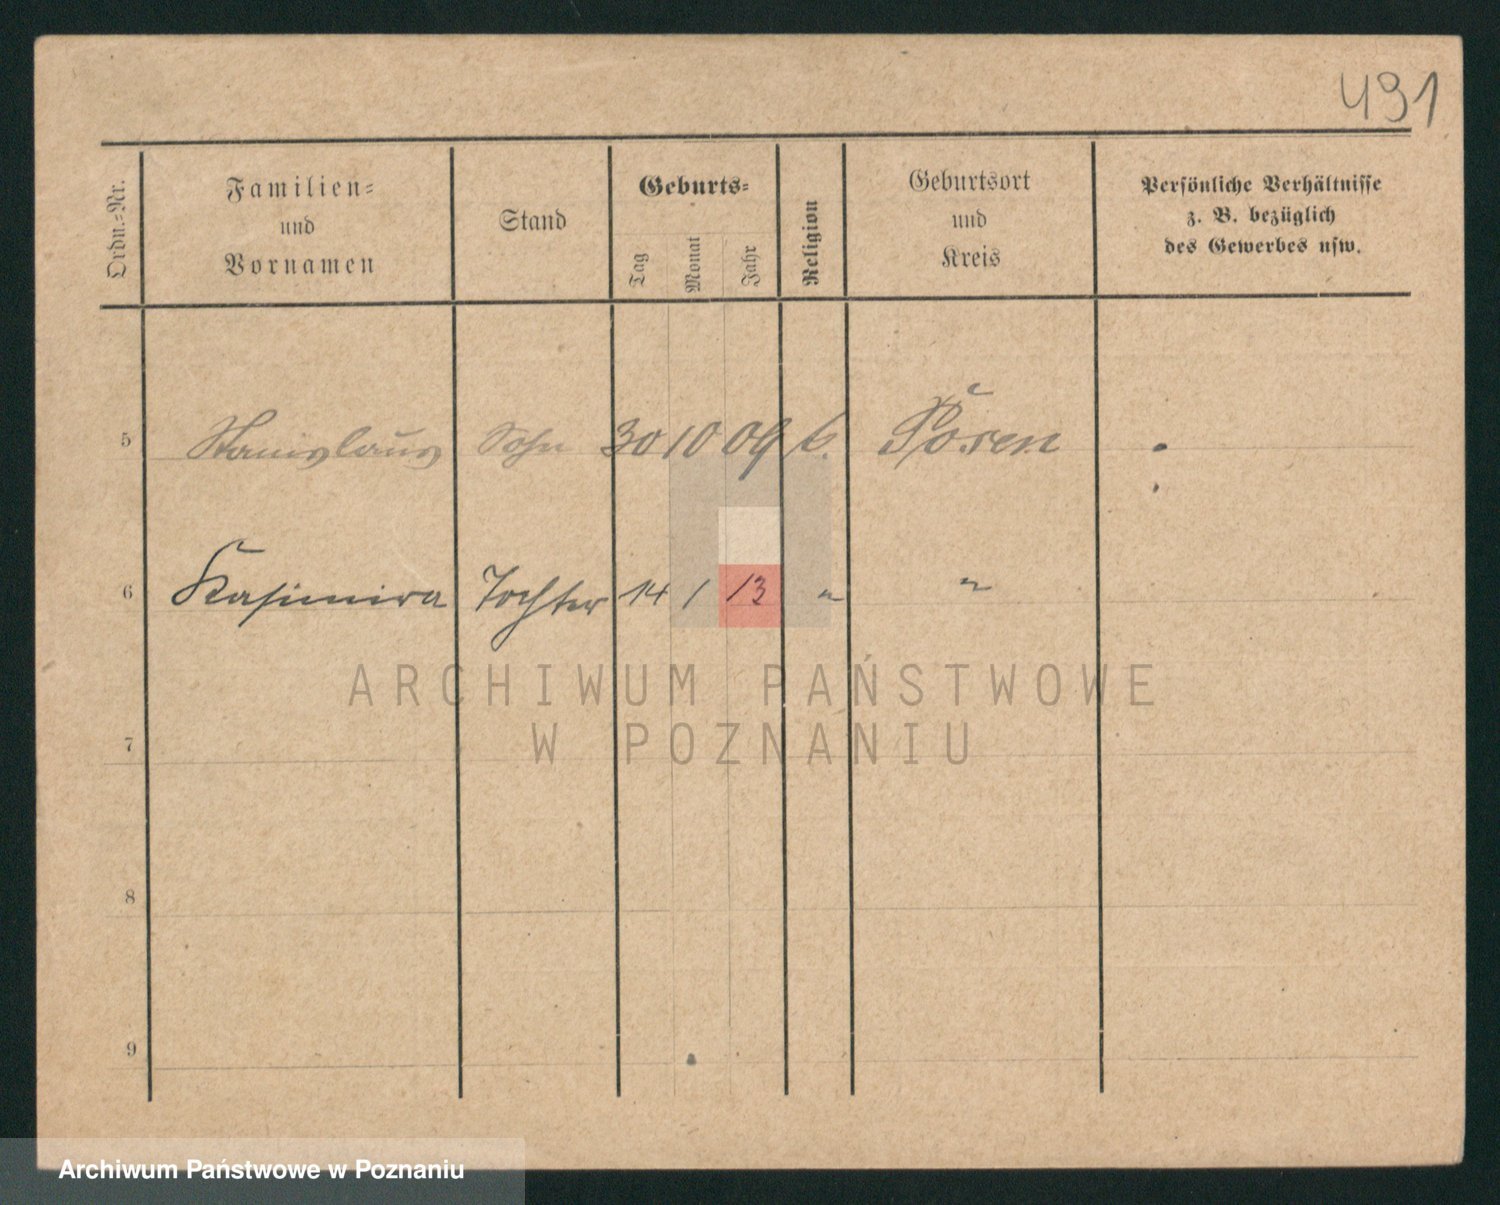 491
Ordn.-Nr.
Familien-
und
Vornamen
Stand
Geburts-
Tag
Monat
Jahr
Religion
Geburtsort
und
Kreis
Persönliche Verhältnisse
z. B. bezüglich
des Gewerbes usw.
5 Stanislaus Sohn 30 10 09 k. Posen
6 Kasimira Tochter 14 1 13 " "
ARCHIWUM PAŃSTWOWE
W POZNANIU
7
8
9
Archiwum Państwowe w Poznaniu